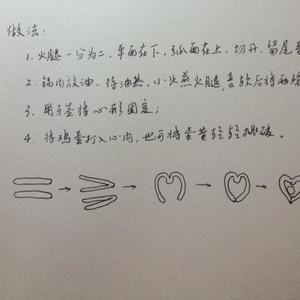 做法:
1. 火腿一分为二,平面在下,弧面在上,切开,留尾
2. 锅内放油,待油热,小火煎火腿,变软后将两
3. 用牙签将心形固定;
4. 将鸡蛋打入心内,也可将蛋黄轻轻挑破。